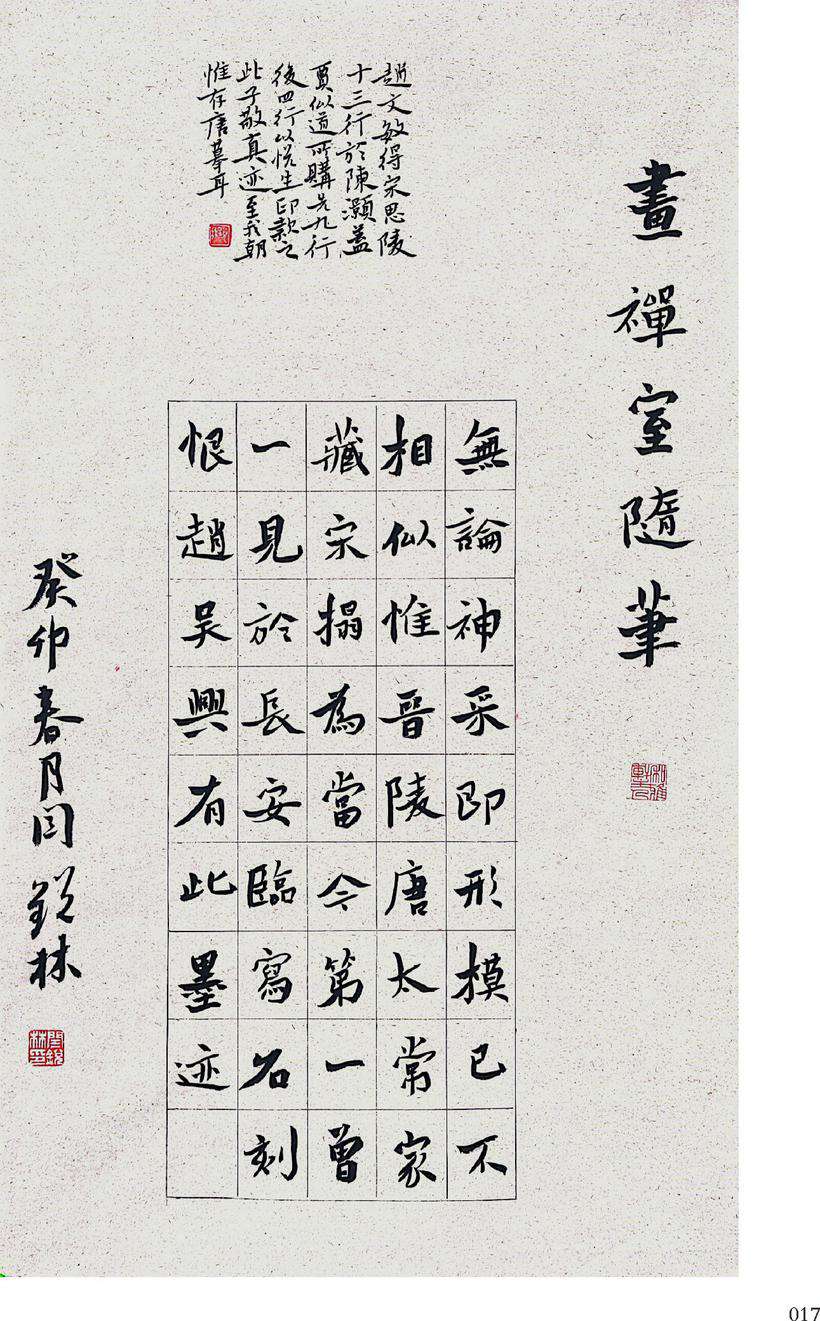 畫禪室隨筆
趙文敏得宋思陵
十三行於陳灝蓋
賈似道所購先九行
後四行以悦生印款之
此子敬真迹至我朝
惟存唐摹耳
無論神采即形模已不
相似惟晉陵唐太常家
藏宋搨為當今第一曾
一見於長安臨寫石刻
恨趙吴興有此墨迹
癸卯春月闫銳林
017